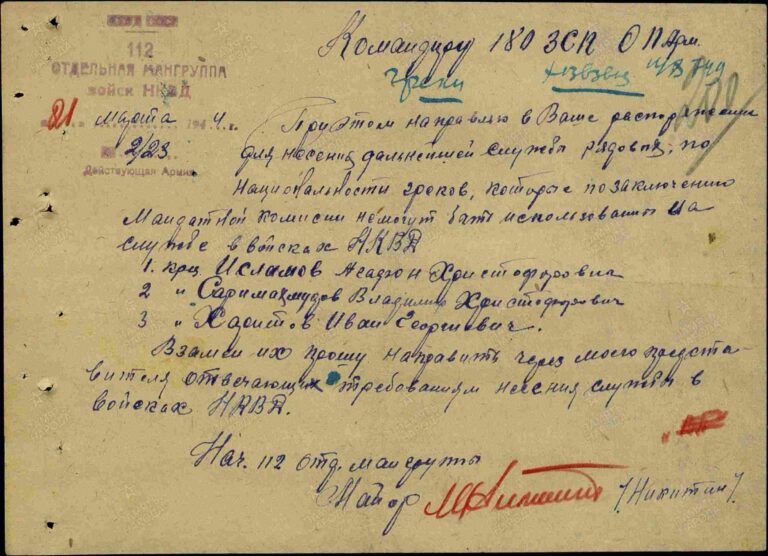 Командиру 180 ЗСП ОПАрм.
112
ОТДЕЛЬНАЯ МАНГРУППА
войск НКВД
греки
21 марта 1944 г.
№ 2/23
Действующая Армия
При этом направлю в Ваше распоряжение
для несения дальнейшей службы рядовых, по
национальности греков, которые по заключению
Мандатной комисии немогут быть использованы на
службе в войсках НКВД
1. крц Исламов Христофоровиг
2 " Саримахмудов Владимир Христофорович
3 " Харитов Иван Георгиевич.
Взамен их прошу направить через моего предста-
вителя отвечающих требованиям несения службы в
войсках НКВД.
Нач. 112 отд. мангруппы
Майор /Никитин/.